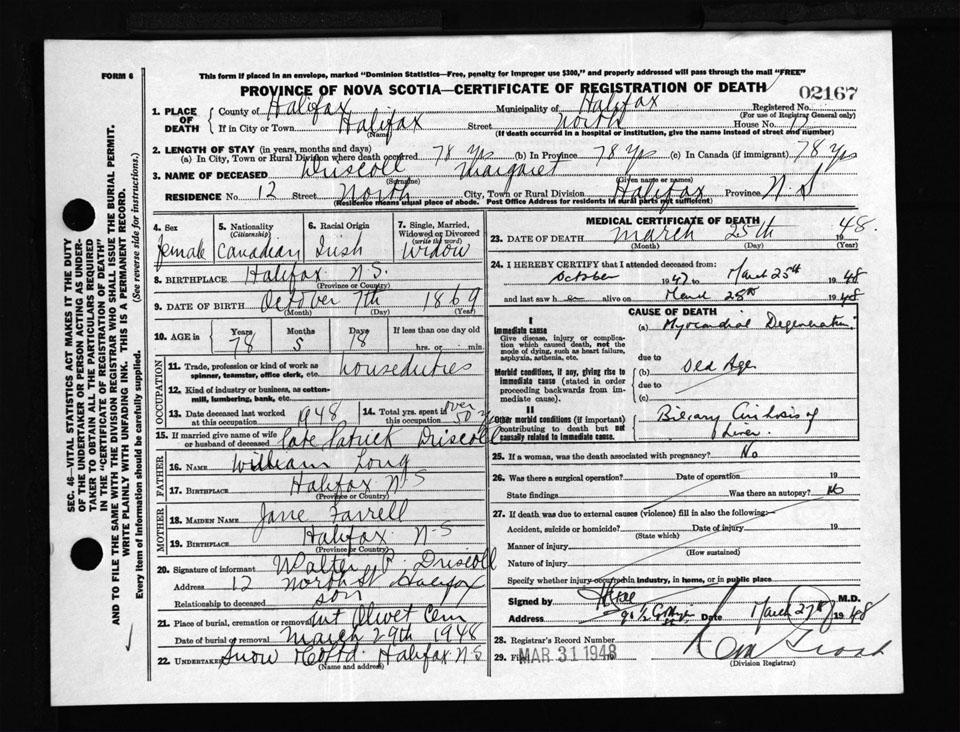 FORM 6
This form if placed in an envelope, marked "Dominion Statistics—Free, penalty for improper use $300," and properly addressed will pass through the mail "FREE"
PROVINCE OF NOVA SCOTIA—CERTIFICATE OF REGISTRATION OF DEATH
02167
1. PLACE OF DEATH { County of Halifax Municipality of Halifax Registered No.
(For use of Registrar General only)
If in City or Town Halifax Street North House No. 12
(Name) (If death occurred in a hospital or institution, give the name instead of street and number)
2. LENGTH OF STAY (in years, months and days)
(a) In City, Town or Rural Division where death occurred 78 Yrs (b) In Province 78 Yrs (c) In Canada (if immigrant) 78 Yrs
3. NAME OF DECEASED Driscoll Margaret
(Surname) (Given name or names)
RESIDENCE No. 12 Street North City, Town or Rural Division Halifax Province N.S
(Residence means usual place of abode. Post Office Address for residents in rural parts not sufficient)
4. Sex
Female
5. Nationality
(Citizenship)
Canadian
6. Racial Origin
Irish
7. Single, Married, Widowed or Divorced
(write the word)
Widow
8. BIRTHPLACE Halifax N.S.
(Province or Country)
9. DATE OF BIRTH October 7th 1869
(Month) (Day) (Year)
10. AGE in { Years Months Days If less than one day old
78 5 18 hrs. or min.
OCCUPATION
11. Trade, profession or kind of work as spinner, teamster, office clerk, etc. houseduties
12. Kind of industry or business, as cotton-mill, lumbering, bank, etc.
13. Date deceased last worked at this occupation 1948
14. Total yrs. spent in this occupation over 50 y
15. If married give name of wife or husband of deceased late Patrick Driscoll
FATHER
16. NAME William Long
17. BIRTHPLACE Halifax N S
(Province or Country)
MOTHER
18. MAIDEN NAME Jane Farrell
19. BIRTHPLACE Halifax N-S
(Province or Country)
20. Signature of informant Walter P. Driscoll
Address 12 North St Halifax
Relationship to deceased son
21. Place of burial, cremation or removal Mt Olivet Cem
Date of burial or removal March 29th 1948
22. Undertaker Snow Co Ltd. Halifax N S
(Name and address)
MEDICAL CERTIFICATE OF DEATH
23. DATE OF DEATH March 25th 1948.
(Month) (Day) (Year)
24. I HEREBY CERTIFY that I attended deceased from:
October 1947 to March 25th 1948
and last saw her alive on March 25th 1948
CAUSE OF DEATH
I
Immediate cause
Give disease, injury or complication which caused death, not the mode of dying, such as heart failure, asphyxia, asthenia, etc.
(a) Myocardial Degeneration
due to
Morbid conditions, if any, giving rise to immediate cause (stated in order proceeding backwards from immediate cause).
(b) Old Age
due to
(c)
II
Other morbid conditions (if important) contributing to death but not causally related to immediate cause.
Biliary Cirrhosis of Liver.
25. If a woman, was the death associated with pregnancy? No
26. Was there a surgical operation? Date of operation 19
State findings Was there an autopsy? No
27. If death was due to external causes (violence) fill in also the following:
Accident, suicide or homicide? Date of injury 19
(State which)
Manner of injury
(How sustained)
Nature of injury
Specify whether injury occurred in industry, in home, or in public place
Signed by M.D.
Address Date March 27th 1948
28. Registrar's Record Number
29. MAR 31 1948
(Division Registrar)
SEC. 46—VITAL STATISTICS ACT MAKES IT THE DUTY OF THE UNDERTAKER OR PERSON ACTING AS UNDERTAKER TO OBTAIN ALL THE PARTICULARS REQUIRED IN THE "CERTIFICATE OF REGISTRATION OF DEATH" AND TO FILE THE SAME WITH THE DIVISION REGISTRAR WHO SHALL ISSUE THE BURIAL PERMIT.
WRITE PLAINLY WITH UNFADING INK. THIS IS A PERMANENT RECORD.
Every item of information should be carefully supplied. (See reverse side for instructions.)